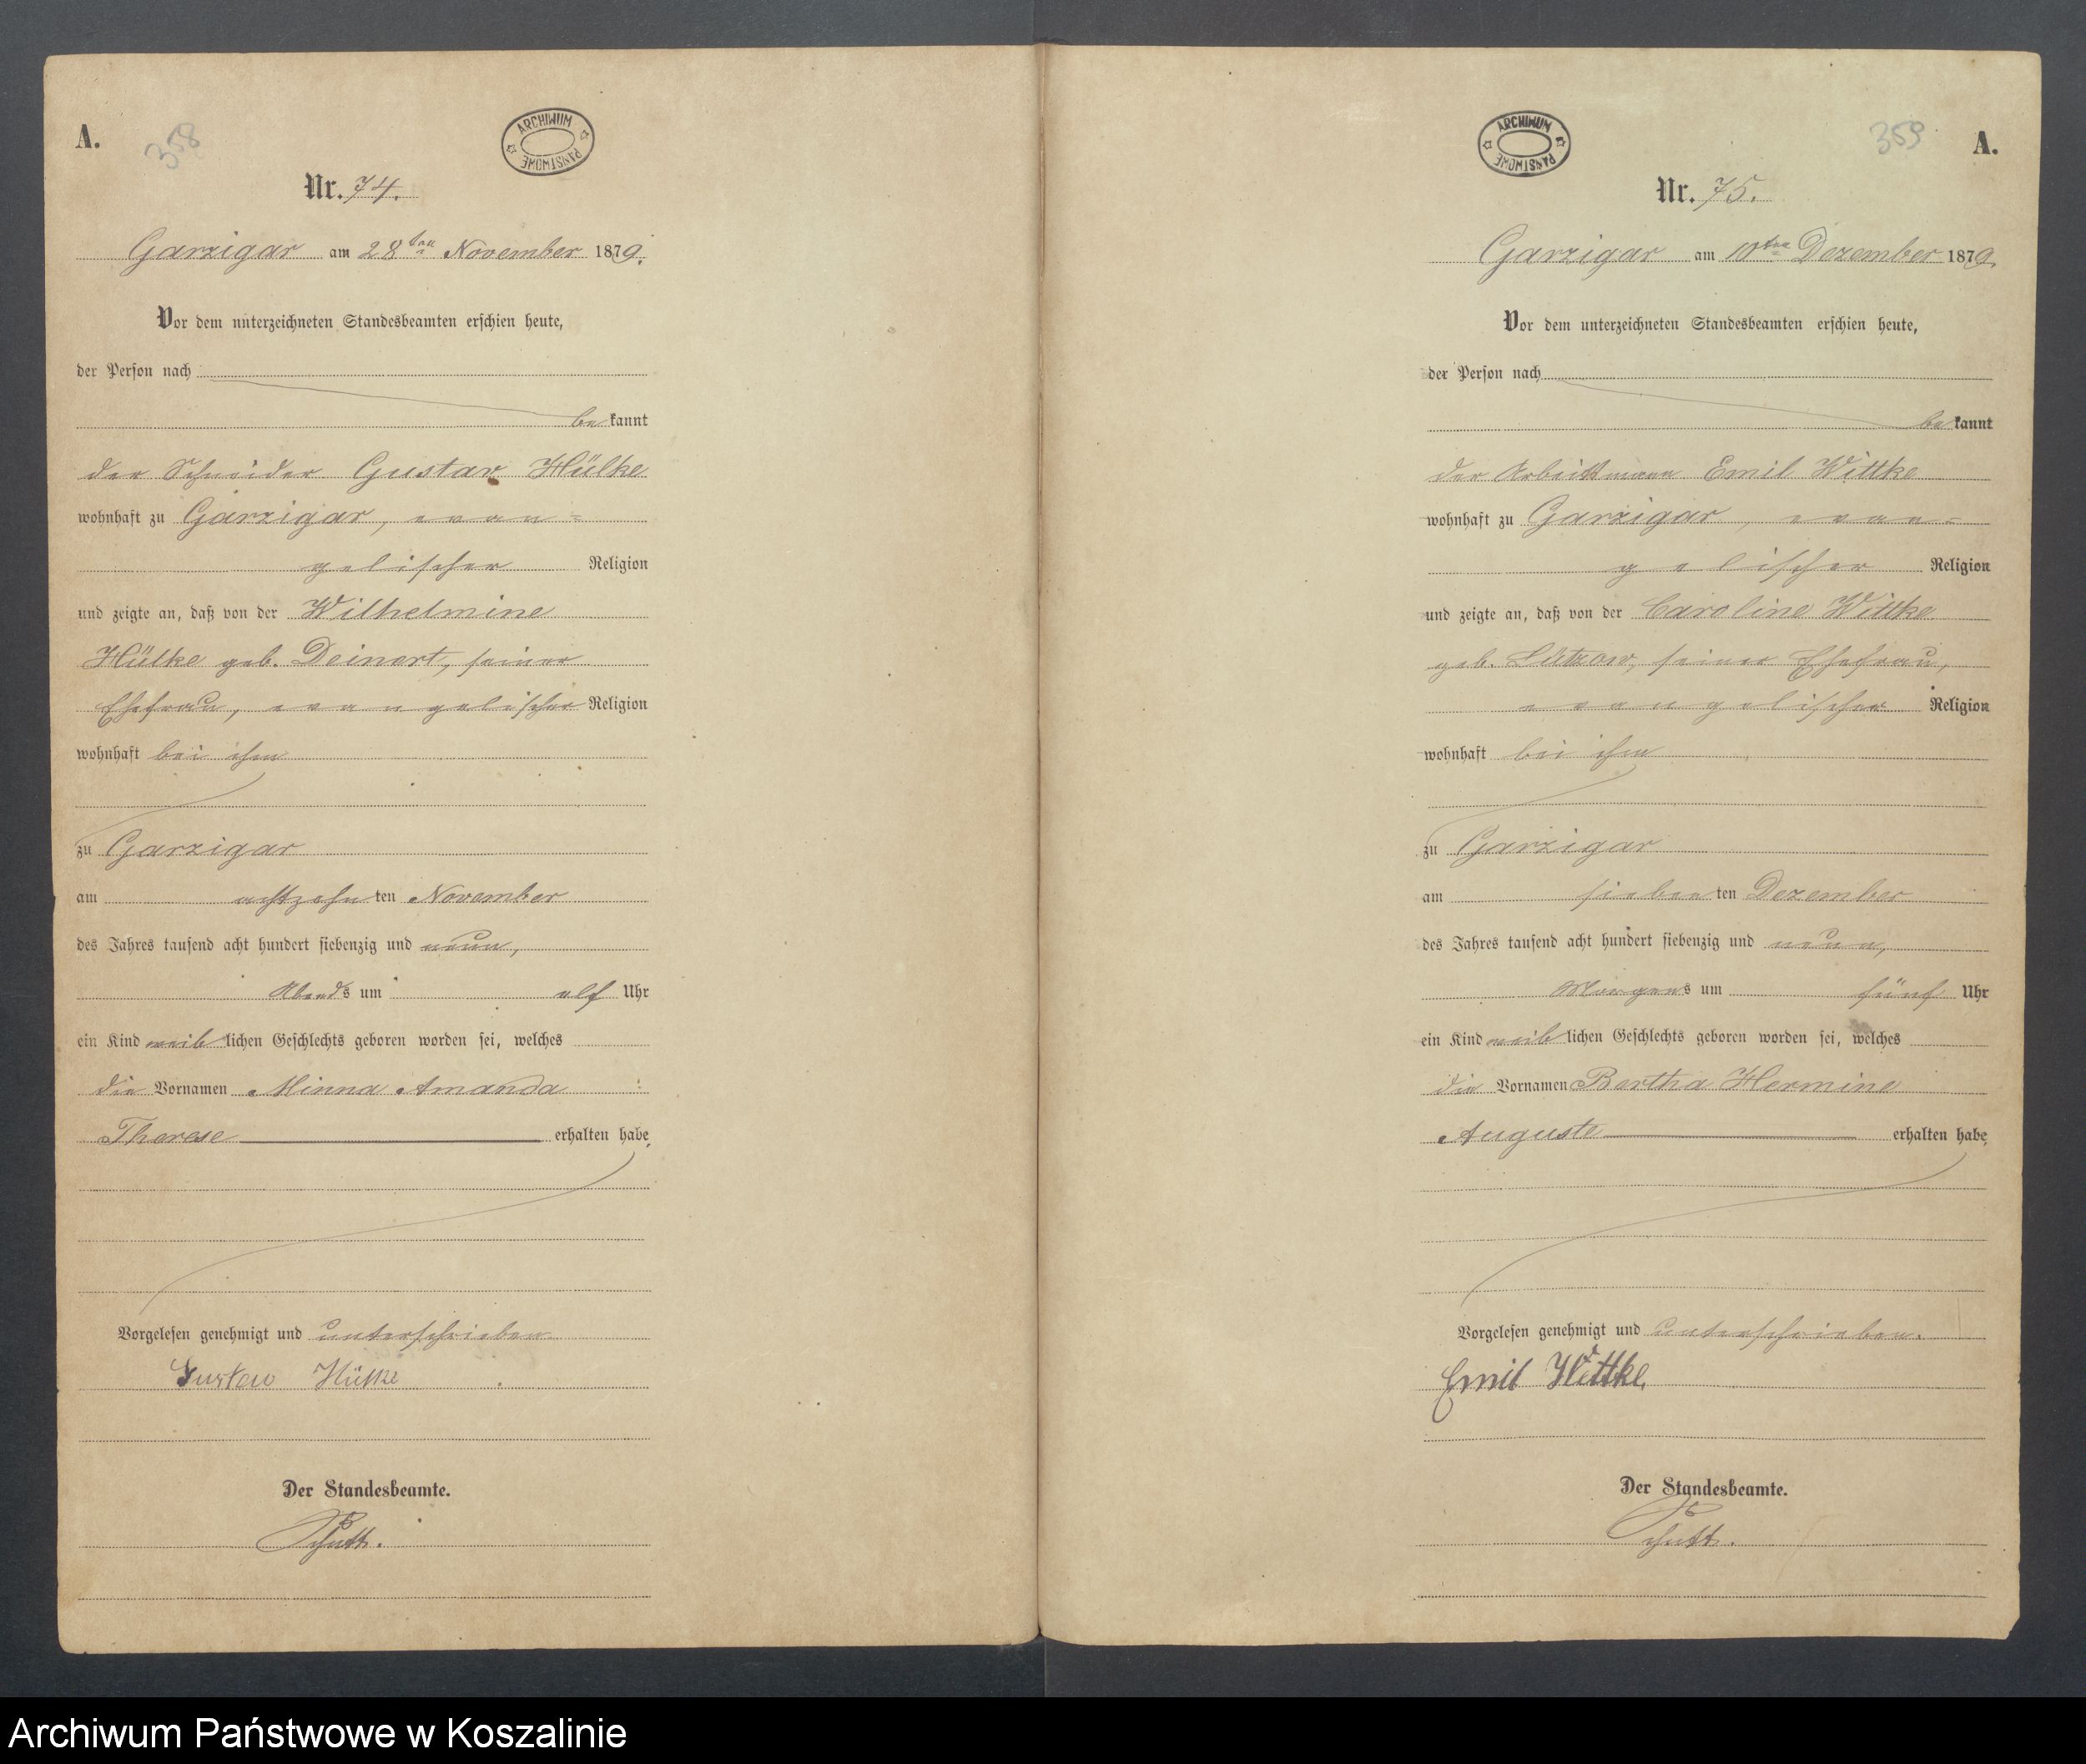 A.
358
ARCHIWUM PAŃSTWOWE
Nr. 74.
Garzigar am 28ten November 1879.
Vor dem unterzeichneten Standesbeamten erschien heute,
der Person nach
bekannt
der Schneider Gustav Hülke
wohnhaft zu Garzigar, evan=
gelischer Religion
und zeigte an, daß von der Wilhelmine
Hülke geb. Deinert, seiner
Ehefrau, evangelischer Religion
wohnhaft bei ihm
zu Garzigar
am achtzehnten November
des Jahres tausend acht hundert siebenzig und neun,
Abends um elf Uhr
ein Kind weiblichen Geschlechts geboren worden sei, welches
die Vornamen Minna Amanda
Therese erhalten habe.
Vorgelesen genehmigt und unterschrieben.
Gustav Hülke
Der Standesbeamte.
ARCHIWUM PAŃSTWOWE
359
A.
Nr. 75.
Garzigar am 10ten Dezember 1879.
Vor dem unterzeichneten Standesbeamten erschien heute,
der Person nach
bekannt
der Arbeitsmann Emil Wittke
wohnhaft zu Garzigar, evan=
gelischer Religion
und zeigte an, daß von der Caroline Wittke
geb. Lützow, seiner Ehefrau,
evangelischer Religion
wohnhaft bei ihm
zu Garzigar
am siebenten Dezember
des Jahres tausend acht hundert siebenzig und neun,
Morgens um fünf Uhr
ein Kind weiblichen Geschlechts geboren worden sei, welches
die Vornamen Bertha Hermine
Auguste erhalten habe.
Vorgelesen genehmigt und unterschrieben.
Emil Wittke
Der Standesbeamte.
Archiwum Państwowe w Koszalinie